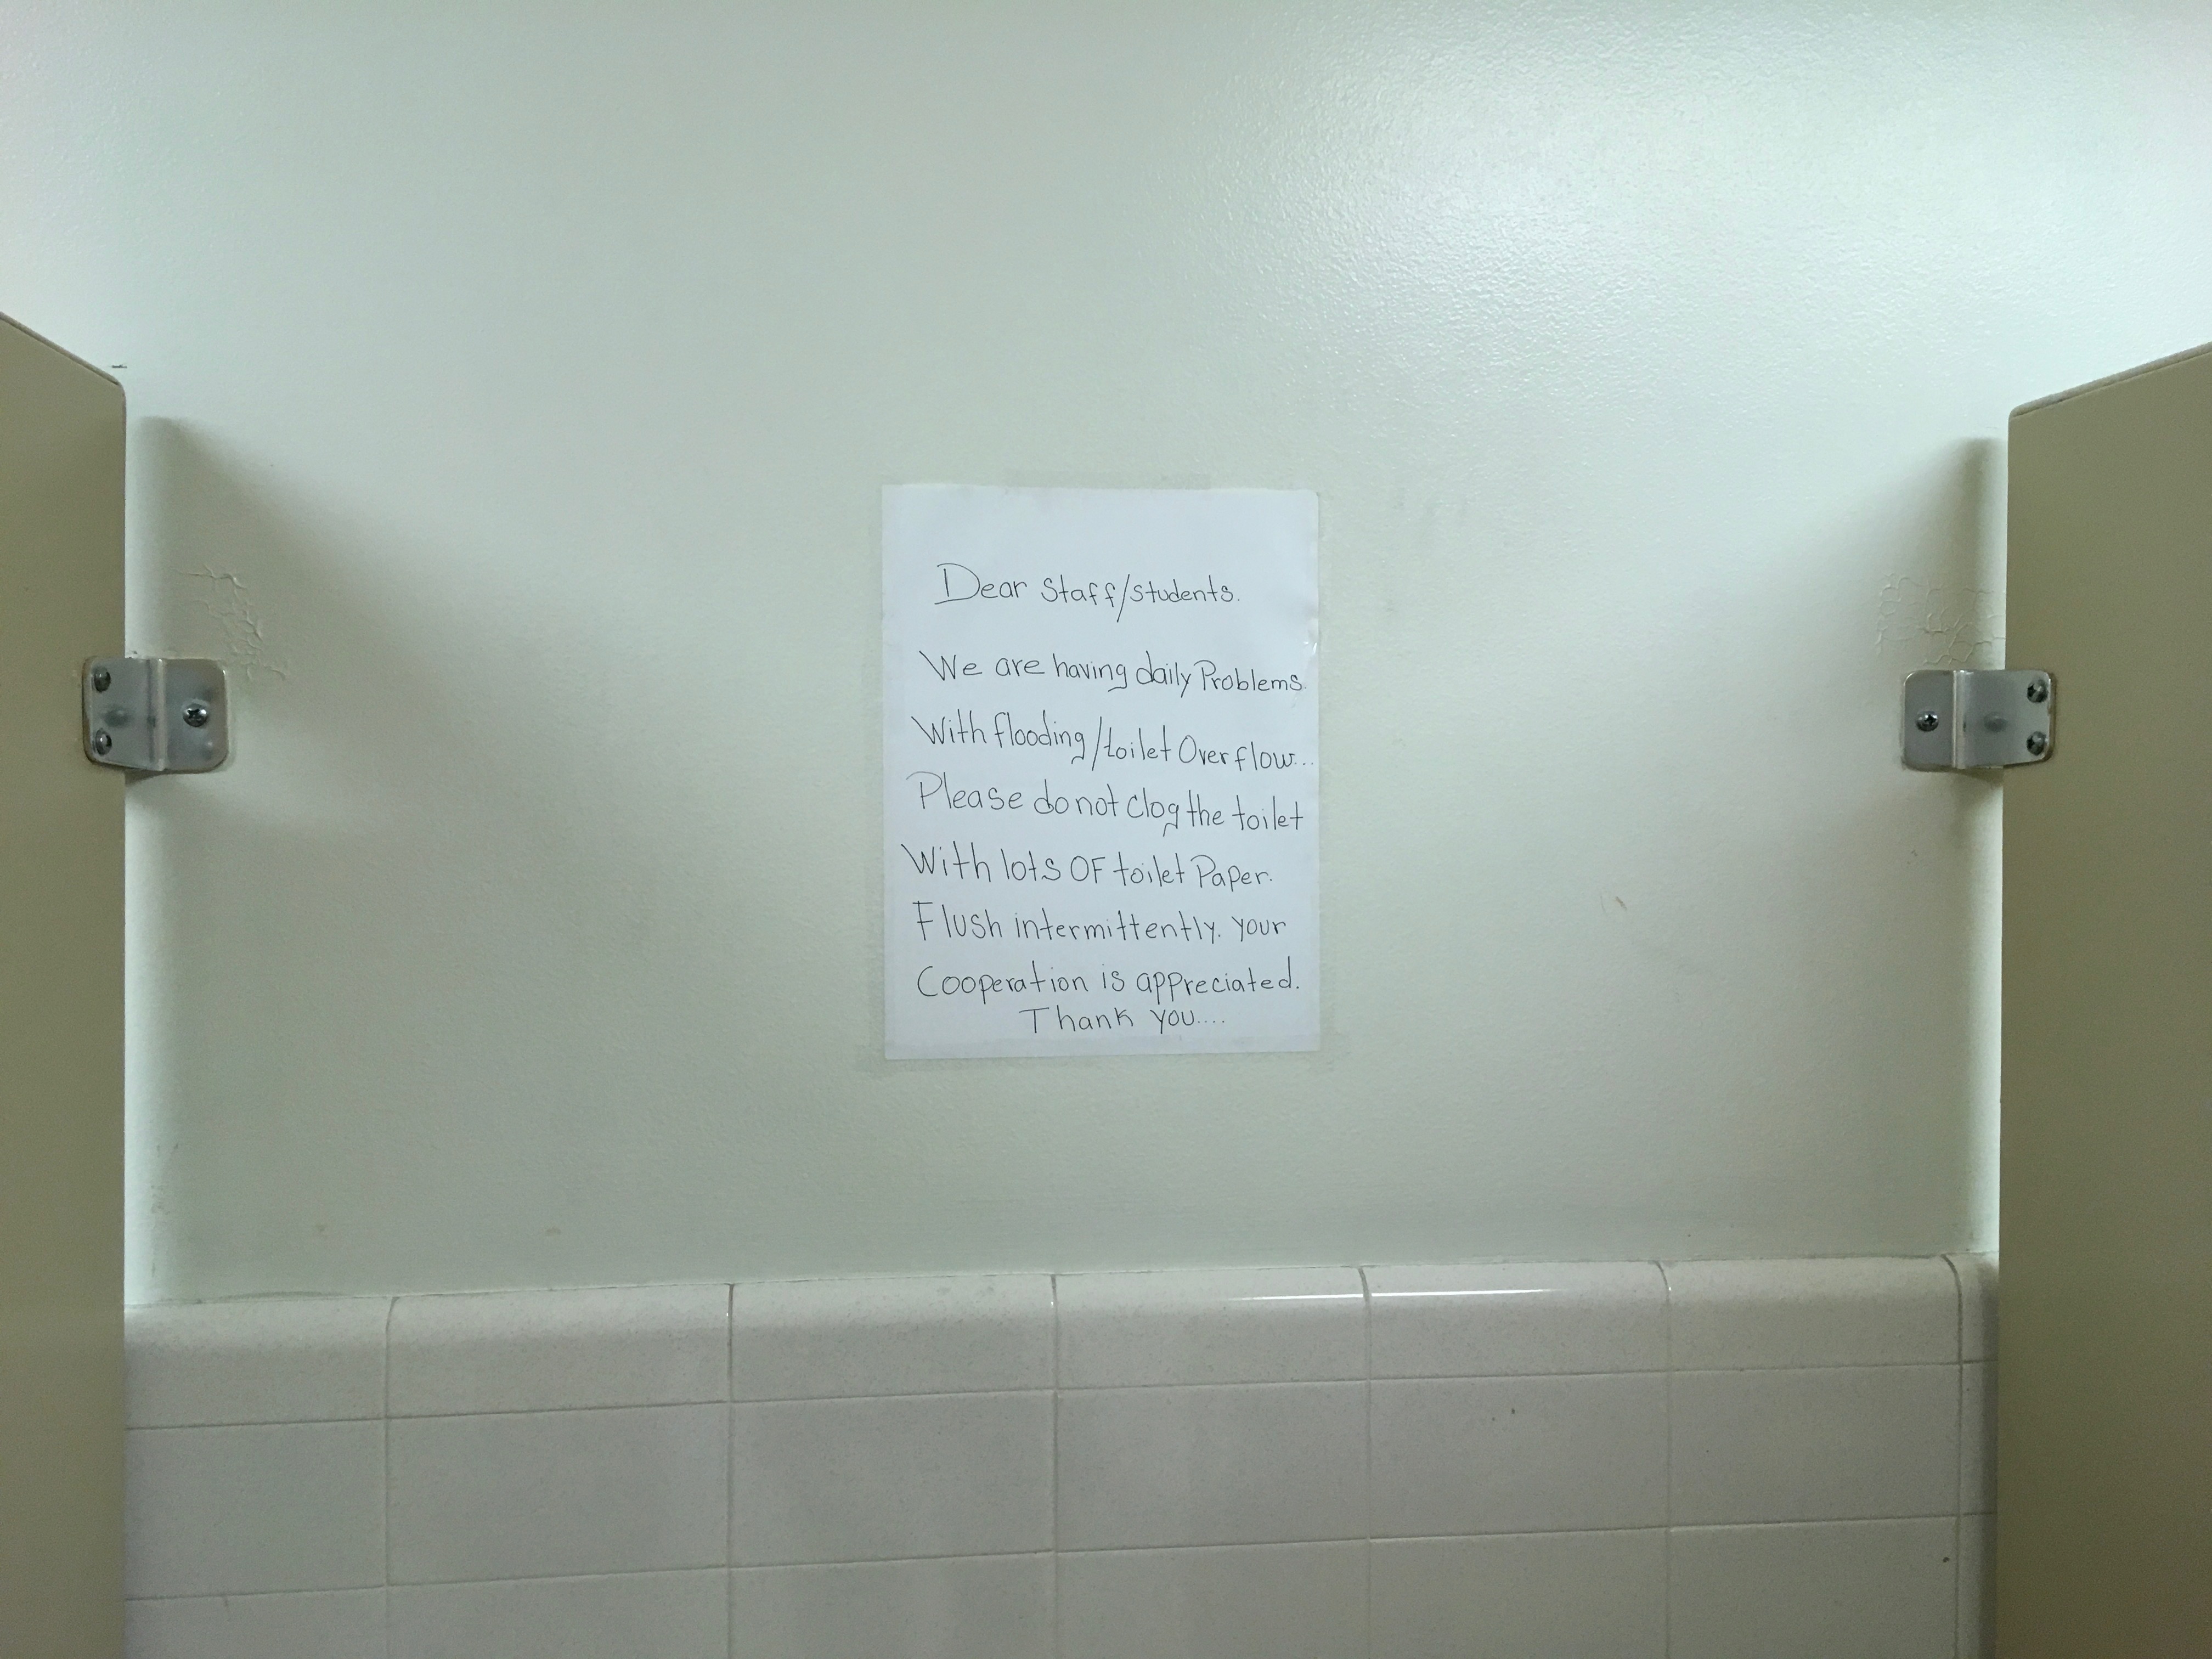 Dear Staff/Students.
We are having daily Problems.
With flooding/toilet Overflow...
Please do not Clog the toilet
With lots OF toilet Paper.
Flush intermittently. your
Cooperation is appreciated.
Thank you....